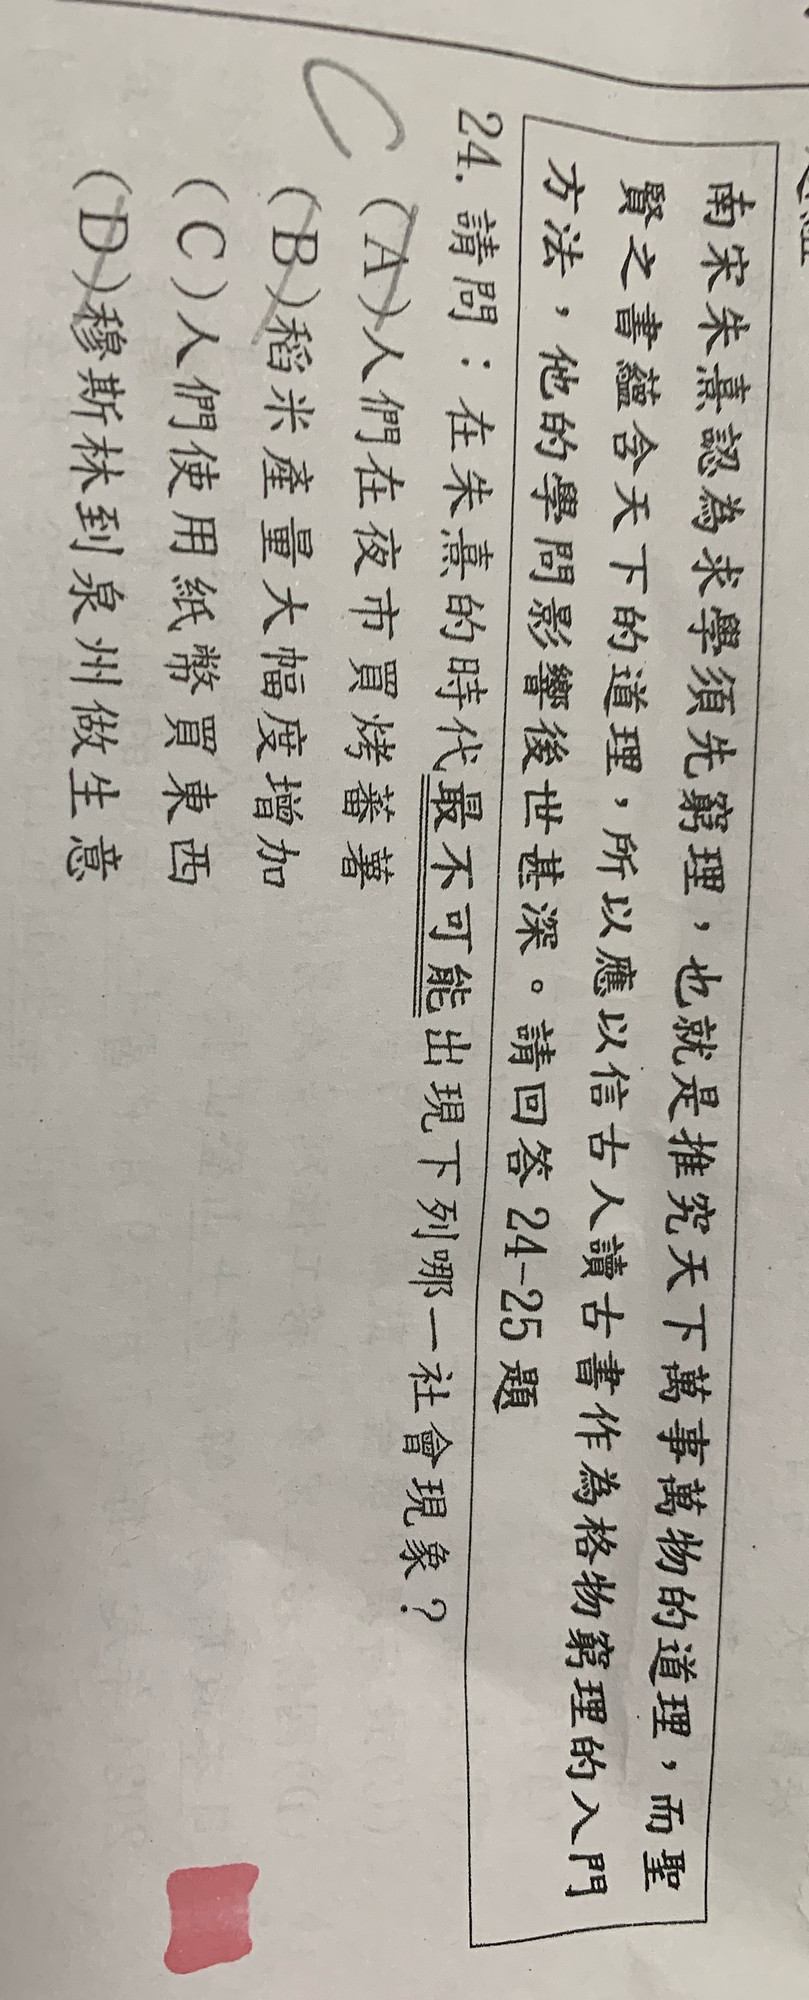 南宋朱熹認為求學須先窮理，也就是推究天下萬事萬物的道理，而聖
賢之書蘊含天下的道理，所以應以信古人讀古書作為格物窮理的入門
方法，他的學問影響後世甚深。請回答24-25題
24.請問：在朱熹的時代最不可能出現下列哪一社會現象？
C
(A)人們在夜市買烤蕃薯
(B)稻米產量大幅度增加
(C)人們使用紙幣買東西
(D)穆斯林到泉州做生意